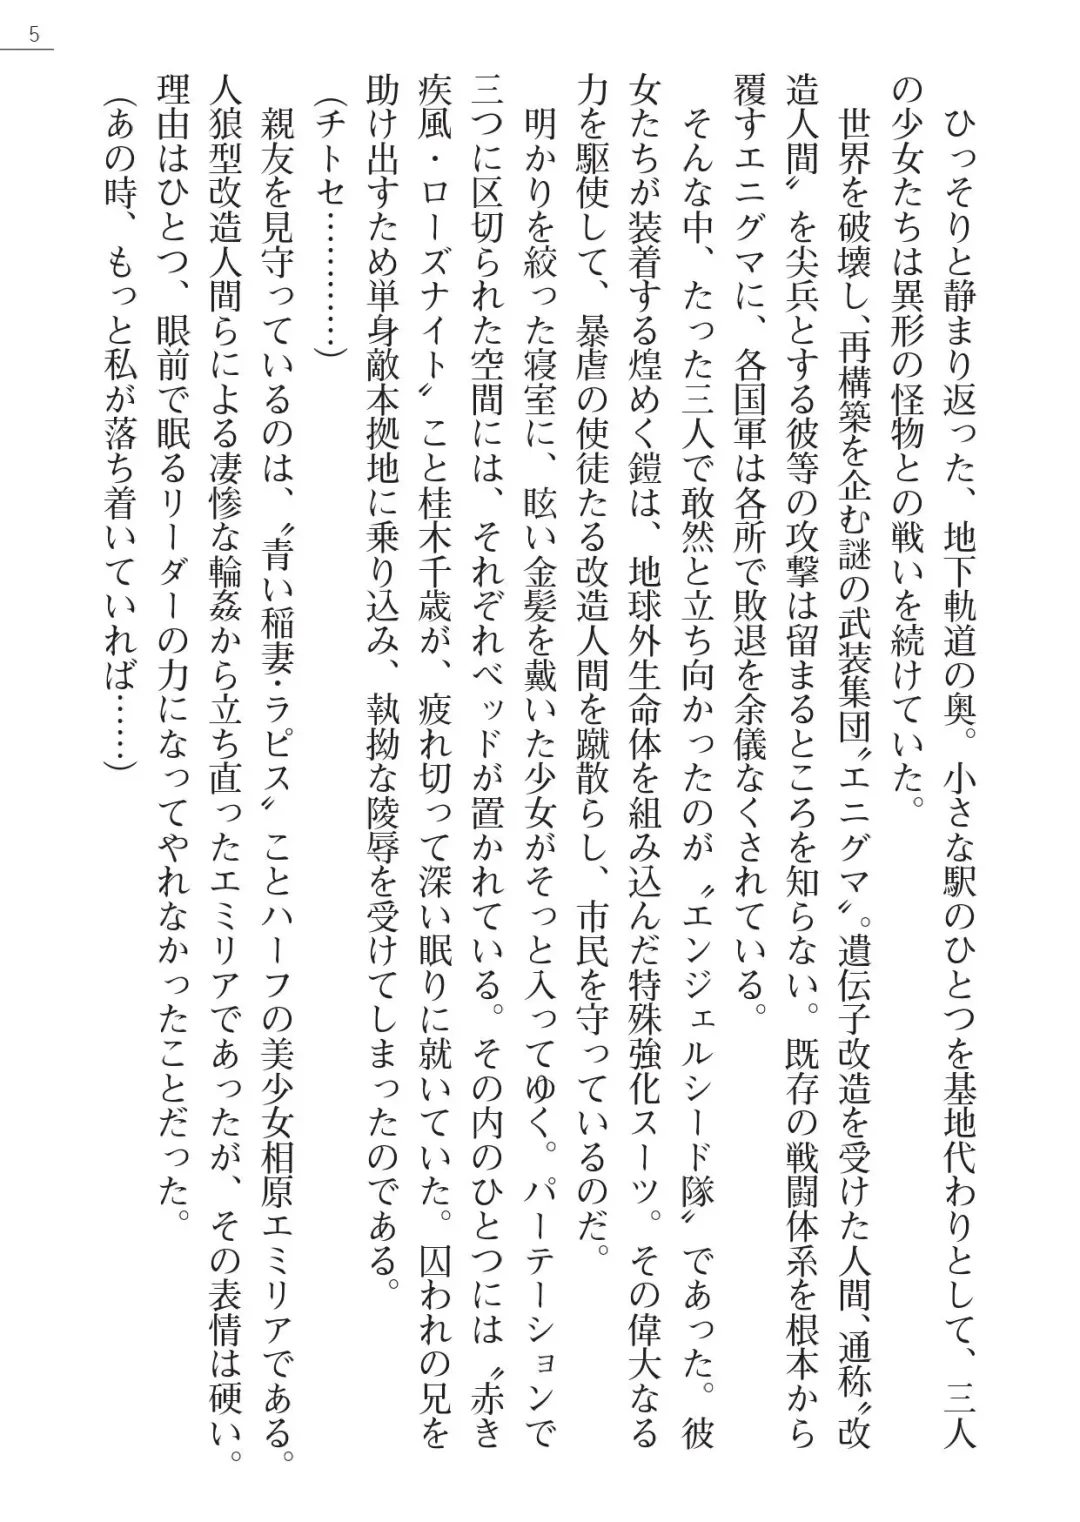 5
ひっそりと静まり返った、地下軌道の奥。小さな駅のひとつを基地代わりとして、三人
の少女たちは異形の怪物との戦いを続けていた。
世界を破壊し、再構築を企む謎の武装集団〝エニグマ〟。遺伝子改造を受けた人間、通称〝改
造人間〟を尖兵とする彼等の攻撃は留まるところを知らない。既存の戦闘体系を根本から
覆すエニグマに、各国軍は各所で敗退を余儀なくされている。
そんな中、たった三人で敢然と立ち向かったのが〝エンジェルシード隊〟であった。彼
女たちが装着する煌めく鎧は、地球外生命体を組み込んだ特殊強化スーツ。その偉大なる
力を駆使して、暴虐の使徒たる改造人間を蹴散らし、市民を守っているのだ。
明かりを絞った寝室に、眩い金髪を戴いた少女がそっと入ってゆく。パーテーションで
三つに区切られた空間には、それぞれベッドが置かれている。その内のひとつには〝赤き
疾風・ローズナイト〟こと桂木千歳が、疲れ切って深い眠りに就いていた。囚われの兄を
助け出すため単身敵本拠地に乗り込み、執拗な陵辱を受けてしまったのである。
（チトセ…………）
親友を見守っているのは、〝青い稲妻・ラピス〟ことハーフの美少女相原エミリアである。
人狼型改造人間らによる凄惨な輪姦から立ち直ったエミリアであったが、その表情は硬い。
理由はひとつ、眼前で眠るリーダーの力になってやれなかったことだった。
（あの時、もっと私が落ち着いていれば……）